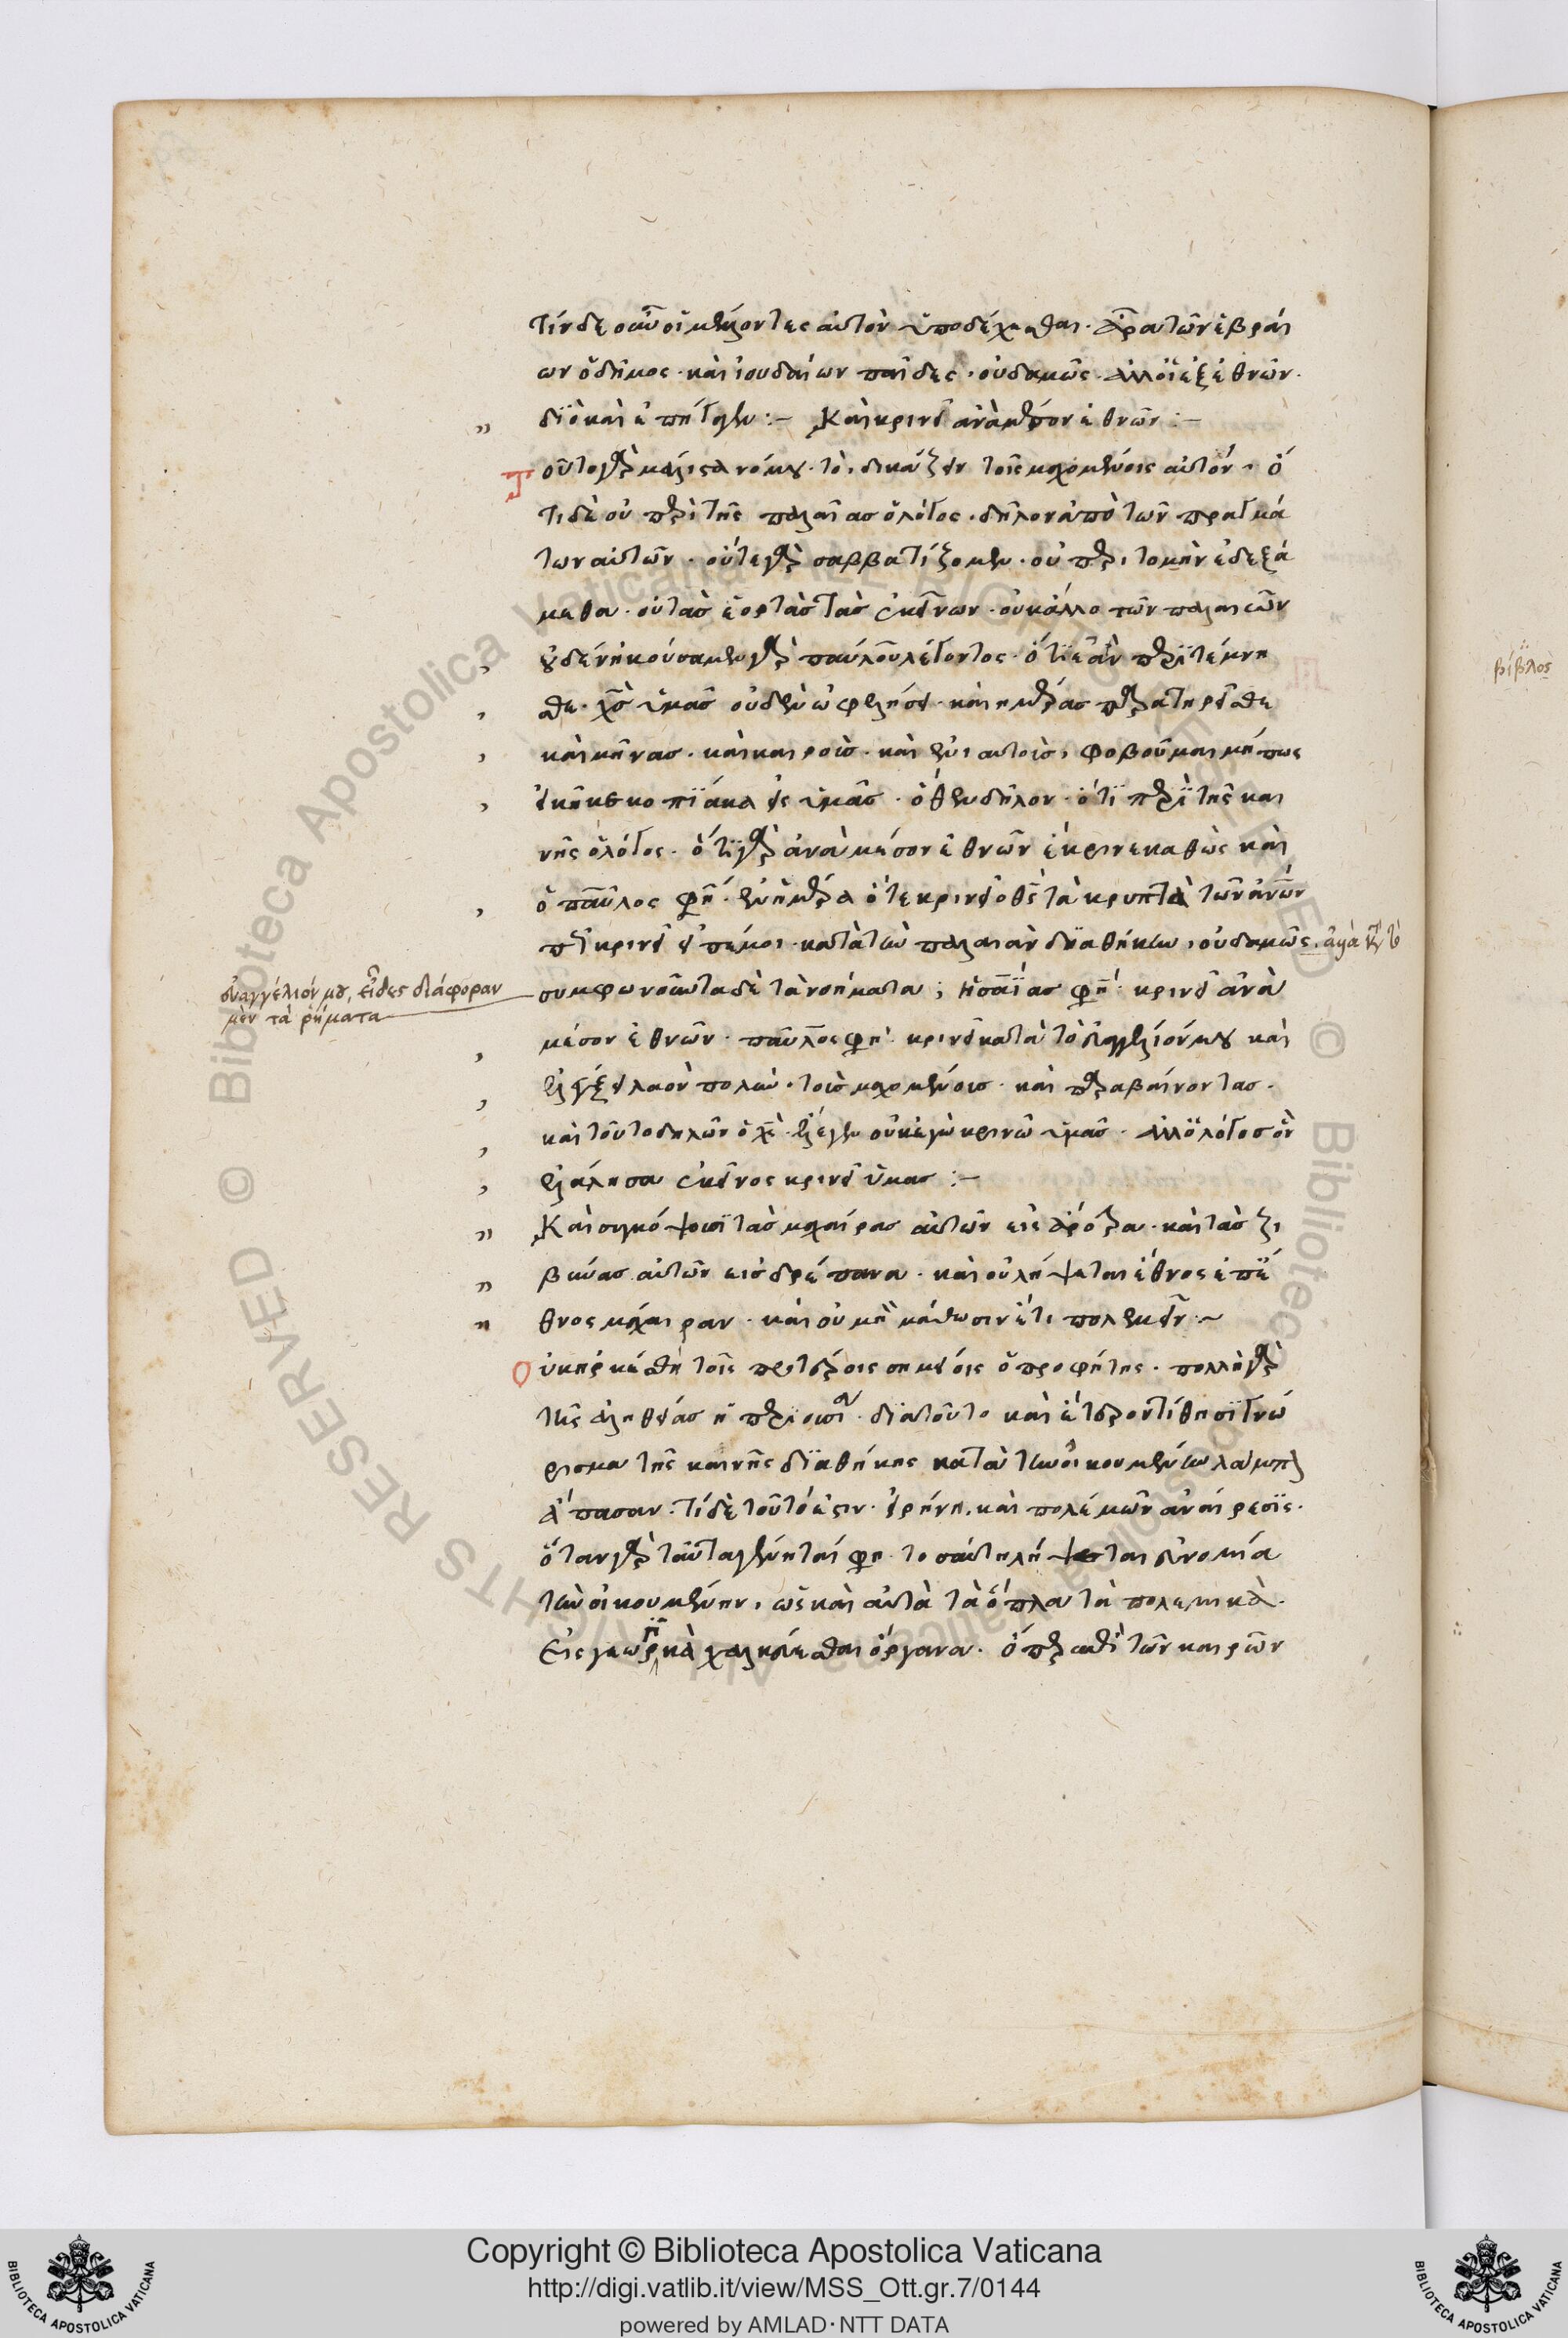 τίνδε οὖν οἱ μέλλοντες αὐτὸν ὑποδέχεσθαι· ἆρα τῶν ἑβραί
ων ὁ δῆμος· καὶ ἰουδαίων παῖδες· οὐδαμῶς· ἀλλ' οἱ ἐξ ἐθνῶν·
διὸ καὶ ἐπήγαγεν :– Καὶ κρινεῖ ἀνὰ μέσον ἐθνῶν :–
Τοῦτο γὰρ μάλιστα νόμου· τὸ δικάζειν τοῖς μαχομένοις αὐτόν· ὅ
τι δὲ οὐ περὶ τῆς παλαιᾶσ ὁ λόγος· δῆλον ἀπὸ τῶν πραγμά
των αὐτῶν· οὔτε γὰρ σαββατίζομεν· οὐ περιτομὴν ἐδεξά
μεθα· οὐ τὰσ ἑορτὰσ τὰσ ἐκείνων· οὐκ ἄλλο τῶν παλαιῶν
οὐδέν ἠκούσαμεν γὰρ παύλου λέγοντος· ὅτι ἐὰν περιτέμνη
σθε· χσ ὑμᾶσ οὐδὲν ὠφελήσει· καὶ ἡμέρασ παρατηρεῖσθε
καὶ μῆνασ· καὶ καιροὺσ· καὶ ἐνιαυτοὺσ· φοβοῦμαι μήπως
εἰκῆ κεκοπίακα εἰς ὑμᾶσ· ὅθεν δῆλον· ὅτι περὶ τῆς και
νῆς ὁ λόγος· ὅτι γὰρ ἀνὰ μέσον ἐθνῶν ἔκρινε καθὼς καὶ
ὁ παῦλος φη· ἐν ἡμέρα ὅτε κρινεῖ ὁ θς τὰ κρυπτὰ τῶν ἀνων
πῶς κρινεῖ εἰπέ μοι· κατὰ τὴν παλαιὰν διαθήκην· οὐδαμῶς· ἀλλὰ κατὰ τὸ
εὐαγγέλιόν μου, εἶδες διάφοραν
μὲν τὰ ῥήματα
συμφωνοῦντα δὲ τὰ νοήματα; ἠσαΐασ φη· κρινεῖ ἀνὰ
μέσον ἐθνῶν· παῦλος φη· κρινεῖ κατὰ τὸ εὐαγγέλιόν μου καὶ
ἐλέγξει λαὸν πολὺν· τοὺσ μαχομένουσ· καὶ παραβαίνοντασ·
καὶ τοῦτο δηλῶν ὁ χς· ἔλεγεν οὐκ ἐγὼ κρινῶ ὑμᾶσ· ἀλλ' ὁ λόγοσ ὃν
ἐλάλησα ἐκεῖνος κρινεῖ ὑμασ :–
Καὶ συγκόψουσι τὰσ μαχαίρασ αὐτῶν εἰς ἄροτρα· καὶ τὰσ ζι
βύνασ αὐτῶν εισ δρέπανα· καὶ οὐ λήψεται ἔθνος ἐπ' ἔ
θνος μάχαιραν· καὶ οὐ μὴ μάθωσιν ἔτι πολεμεῖν ·~
Οὐκ ἠρκέσθη τοῖς προτέροις σημείοις ὁ προφήτης· πολλὴ γὰρ
τῆς ἀληθείασ ἡ περιουσία· διατοῦτο καὶ ἕτερον τίθησι γνώ
ρισμα τῆς καινῆς διαθήκης κατὰ τὴν οἰκουμένην λάμπει
ἅπασαν· τί δὲ τοῦτό ἐστιν· εἰρήνη, καὶ πολέμων ἀναίρεσις·
ὅταν γὰρ ταῦτα γένηταί φη· τοσαύτη λήψεται εὐνομία
τὴν οἰκουμένην· ὡς καὶ αὐτὰ τὰ ὅπλα τὰ πολεμικὰ·
Εἰς γεωργικὰ χαλκεύεσθαι ὄργανα· ὅπερ ἐπὶ τῶν καιρῶν
βίβλος
Copyright © Biblioteca Apostolica Vaticana
http://digi.vatlib.it/view/MSS_Ott.gr.7/0144
powered by AMLAD·NTT DATA